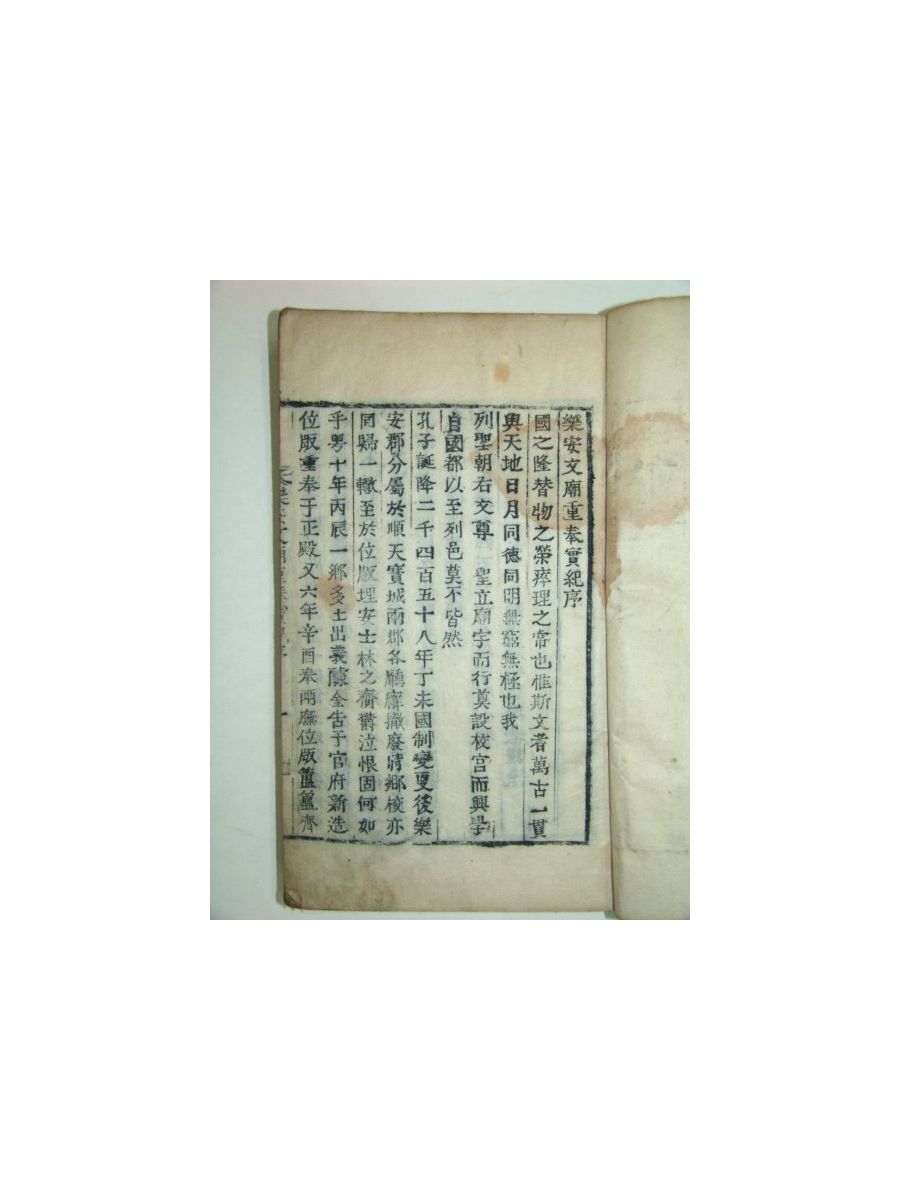 樂安文廟重奉實紀序
國之隆替物之榮瘁理之常也惟斯文者萬古一貫
與天地日月同德同明無窮無極也我
列聖朝右文尊 聖立廟宇而行奠設校宮而興學
自國都以至列邑莫不皆然
孔子誕降二千四百五十八年丁未國制變更後樂
安郡分屬於順天寶城兩郡各廳廨撤廢將鄉校亦
同歸一轍至於位版埋安士林之齎欝泣恨固何如
乎粤十年丙辰一鄉多士出義醵金告于官府新造
位版重奉于正殿又六年辛酉奉兩廡位版簠簋齊